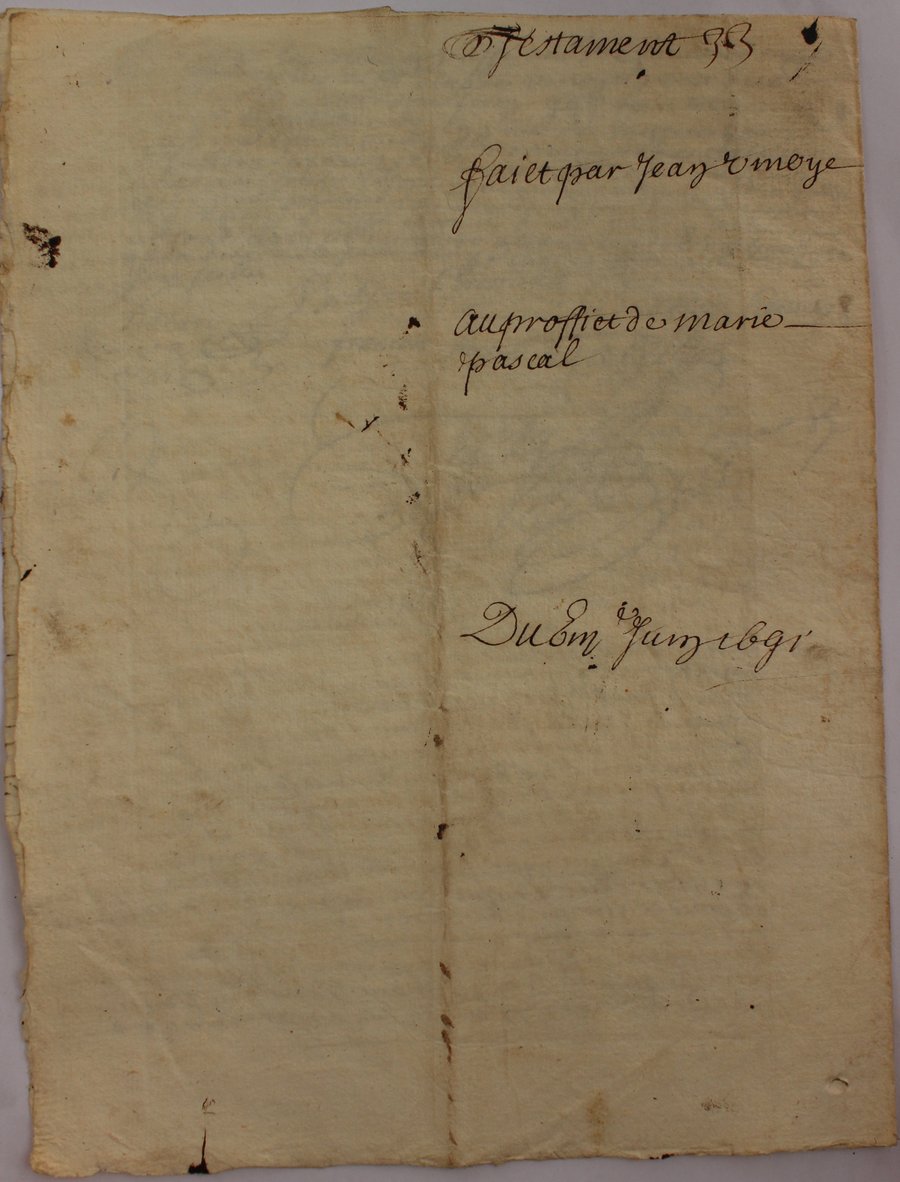 Testament 33
faict par Jean Vmoye
au proffict de marie
pascal
Du Em^e Juin 1691